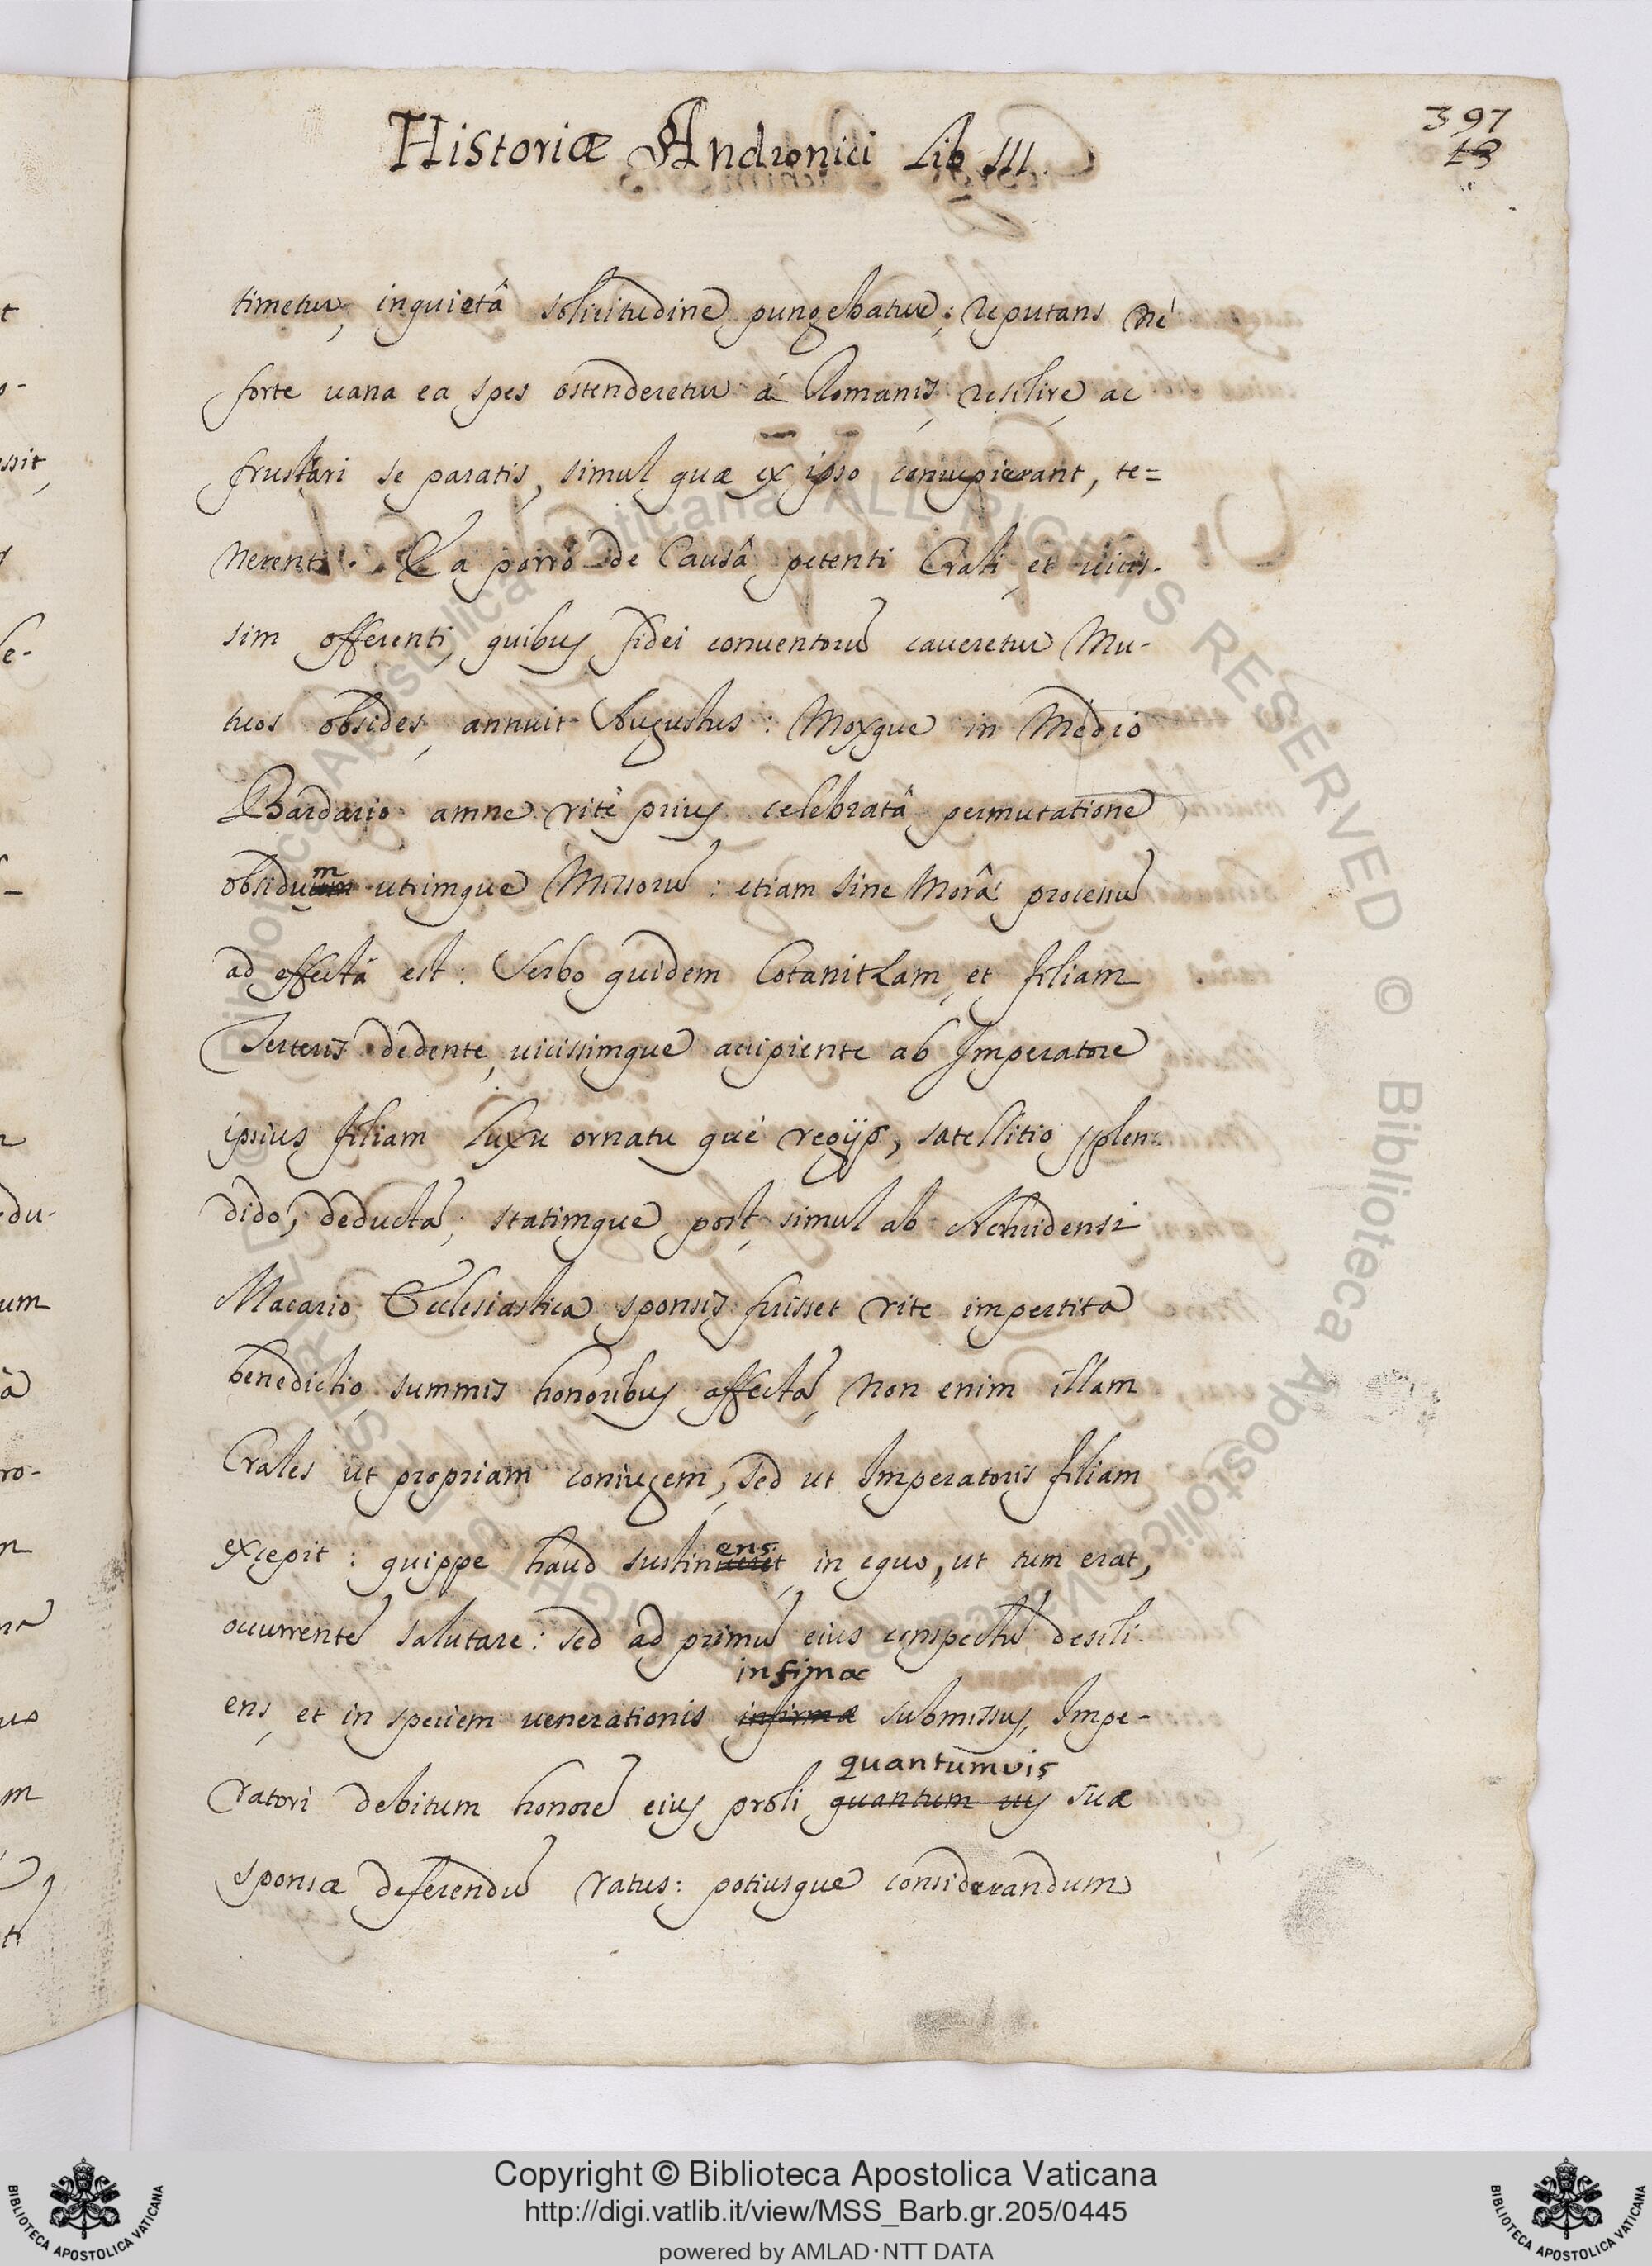 Historiæ Andronici Lib III.
397
13
timetur, inquietâ solicitudine pungebatur; reputans nè
forte uana ea spes ostenderetur à Romanis, resilire ac
frustari se paratis, simul quæ ex ipso concupierant, te=
nerent. Ea porrò de Causâ petenti Crali et uicis-
sim offerenti, quibus fidei conuentorũ caueretur Mu-
tuos obsides, annuit Augustus: Moxque in Medio
Bardario amne ritè prius celebratâ permutatione
obsidum utrimque Missorũ: etiam sine Morâ processũ
ad effectã est: Serbo quidem Cotanitzam, et filiam
Terteris dedente, uicissimque accipiente ab Imperatore
ipsius filiam luxu ornatu quė regijs, satellitio splen-
dido, deductã; statimque post, simul ab Achridensi
Macario Ecclesiastica sponsis fuisset rite impertita
benedictio, summis honoribus affectã, non enim illam
Crales ut propriam coniugem, sed ut Imperatoris filiam
excepit: quippe haud sustinueret
ens
in equo, ut tum erat,
occurrentẽ salutare: sed ad primũ eius conspectũ desili-
infimæ
ens, et in speciem uenerationis infirmæ submissus, Impe-
quantumuis
ratori debitum honorẽ eius proli quantum uis suæ
sponsæ deferendũ ratus: potiusque considerandum
Copyright © Biblioteca Apostolica Vaticana
http://digi.vatlib.it/view/MSS_Barb.gr.205/0445
powered by AMLAD·NTT DATA